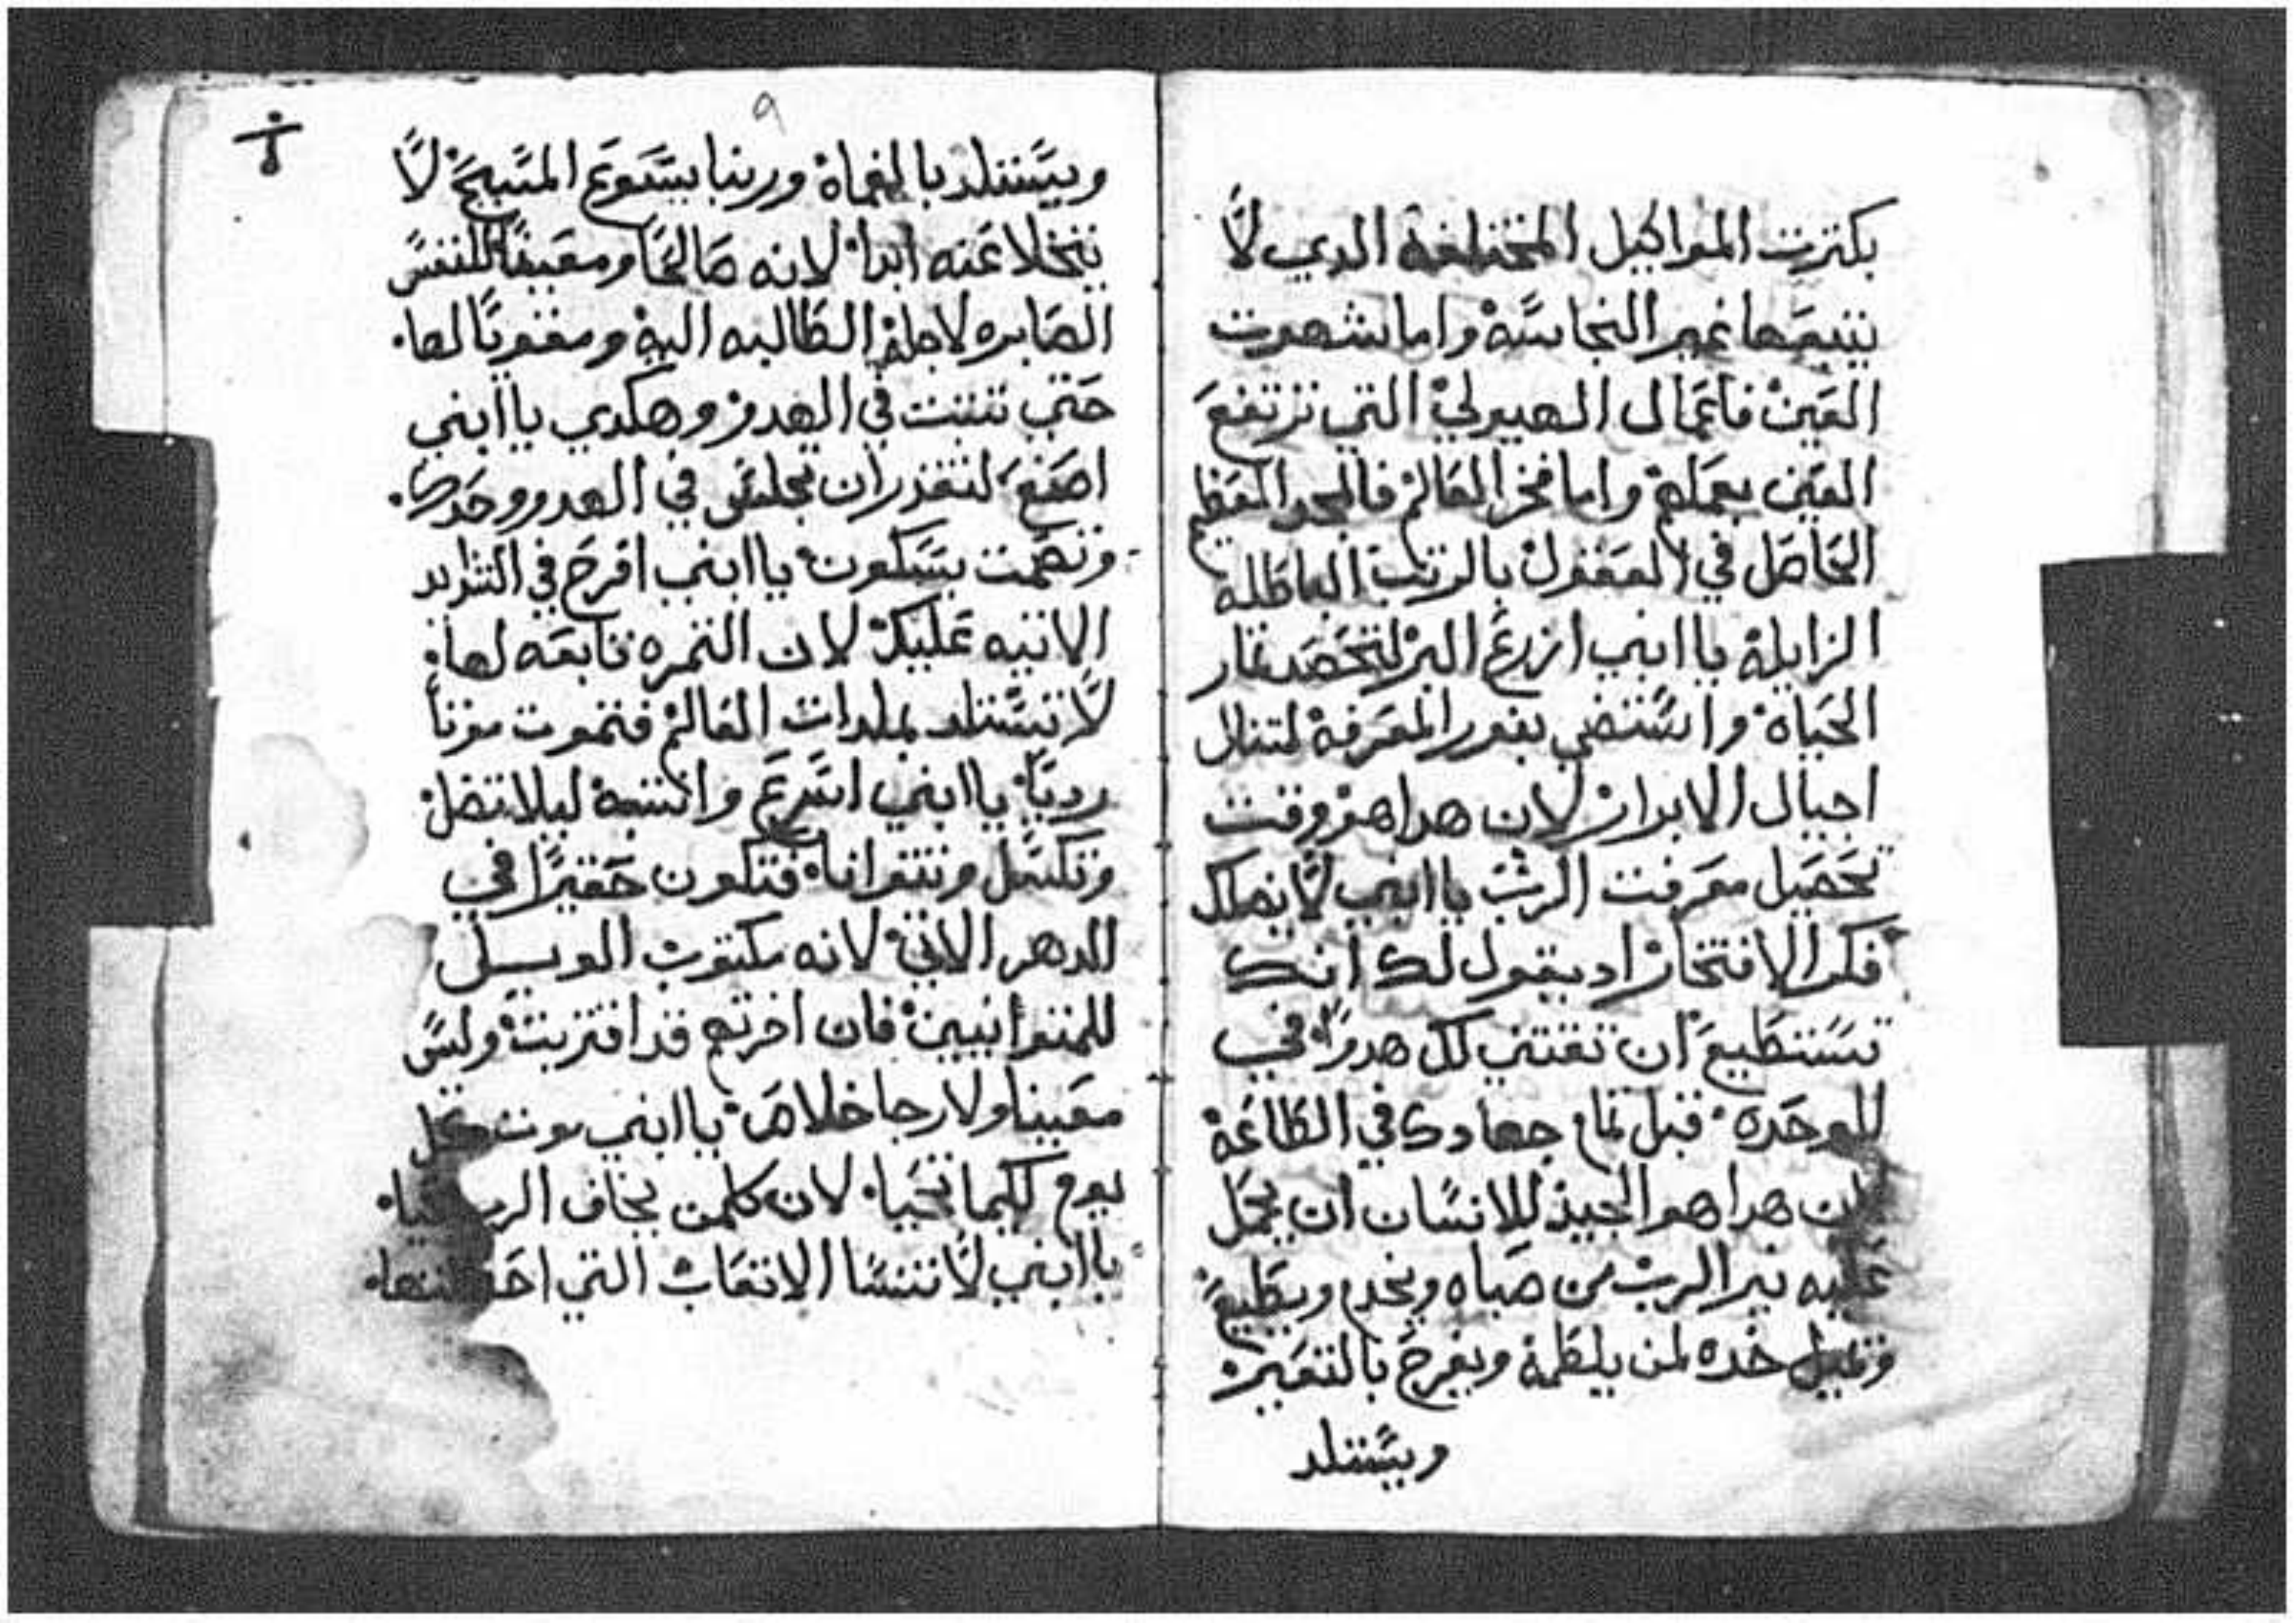 بكترت المواكيل المختلفة الدي لا
يتبعها غير النجاسة واما شهوت
العين فاعمال الهيولي التي ترتفع
العين بعملة واما فخر العالم فالمجد المعظم
الحاصل في العقول بالرتب الباطلة
الزايلة يا ابني ازرع البر لتحصد تمار
الحياة واستضي بنور المعرفة لتنال
اجيال الابرار لان هدا هو وقت
تحصيل معرفت الرب يا ابني لا يهلك
فكر الافتخار اد يقول لك انك
تستطيع ان تقتني كل هدوا في
الوحدة قبل تمام جهادك في الطاعة
لان هدا هو الجيد للانسان ان يحمل
عليه نير الرب من صباه ويخدم ويطيع
وتميل خده لمن يلطمة ويفرح بالتعيير
ويستلد
٩
ويستلد بالمحماة وربنا يسوع المسيح لا
يتخلا عنه ابدا لانه صالحا ومعينا للنفس
الصابره لاجلة الطالبه الية ومقويا لها
حتي تتبت في الهدو وهكدي يا ابني
اصنع لتقدر ان تجلس في الهدو وحدك
وتصمت بسكون يا ابني افرح في الشدايد
الاتيه عليك لان التمره تابعه لها
لا تستلد بملدات العالم فتموت موتا
رديا يا ابني اسرع وانتبه ليلا تضل
وتكسل وتتوانا فتكون حقيرا في
الدهر الاتي لانه مكتوب الويل
للمتوانيين فان اخرتهم قد اقتربت وليس
معينا ولا رجا خلاص يا ابني موت كل
يوم لكيما تحيا لان كلمن يخاف الرب
يا ابني لا تنسا الاتعاب التي